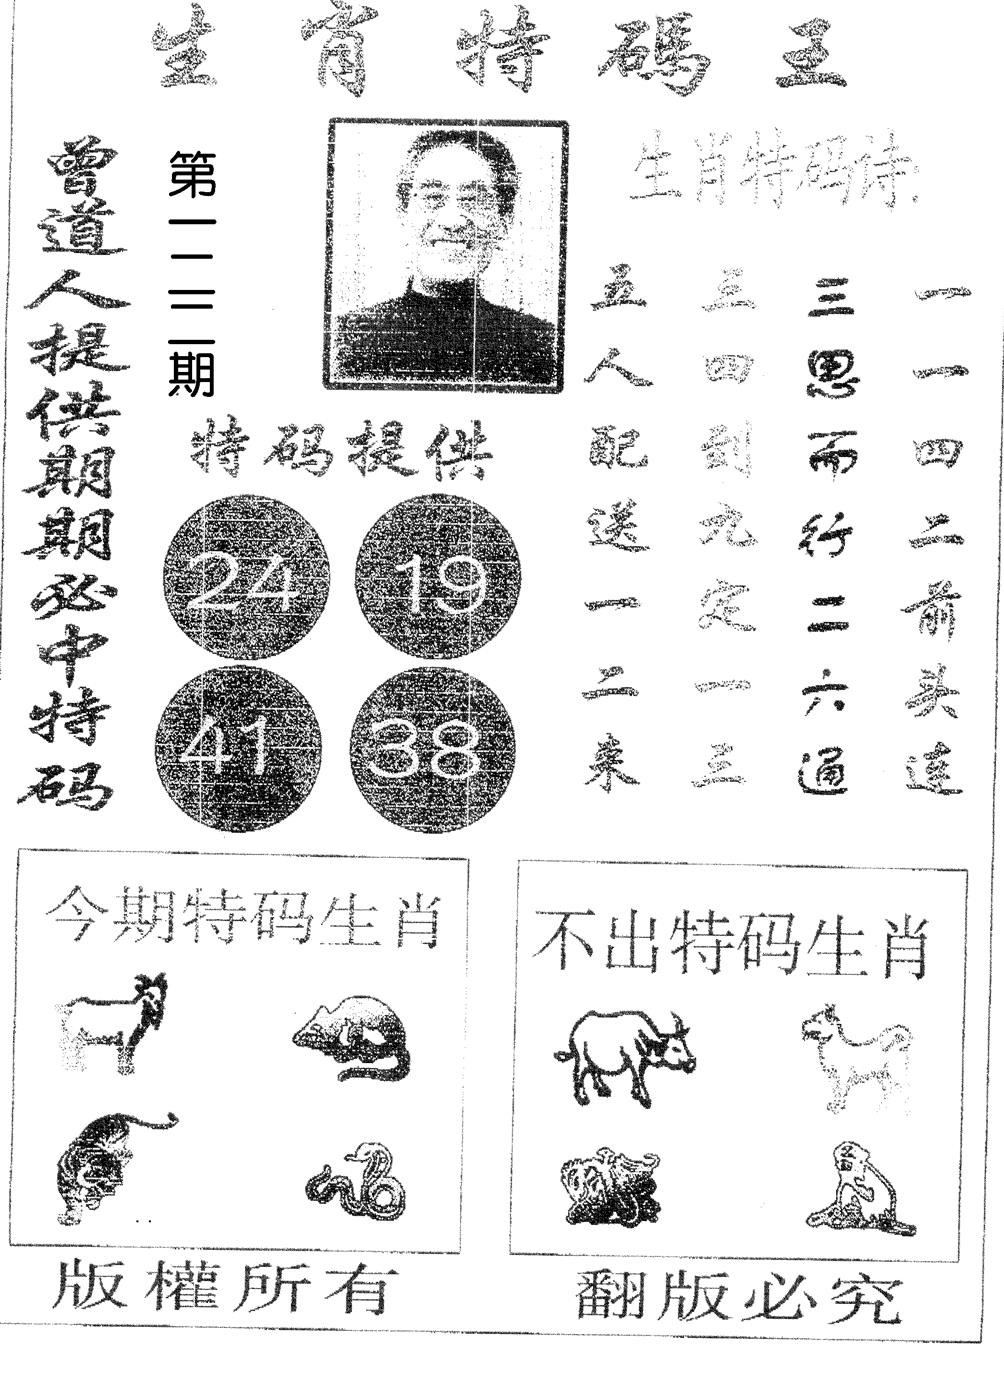 生肖特碼王
曾道人提供期期必中特码
第期
特码提供
24 19
41 38
生肖特码诗:
一一四二前头连
三思而行二六通
三四到九定一三
五人配送一二来
今期特码生肖
不出特码生肖
版權所有
翻版必究